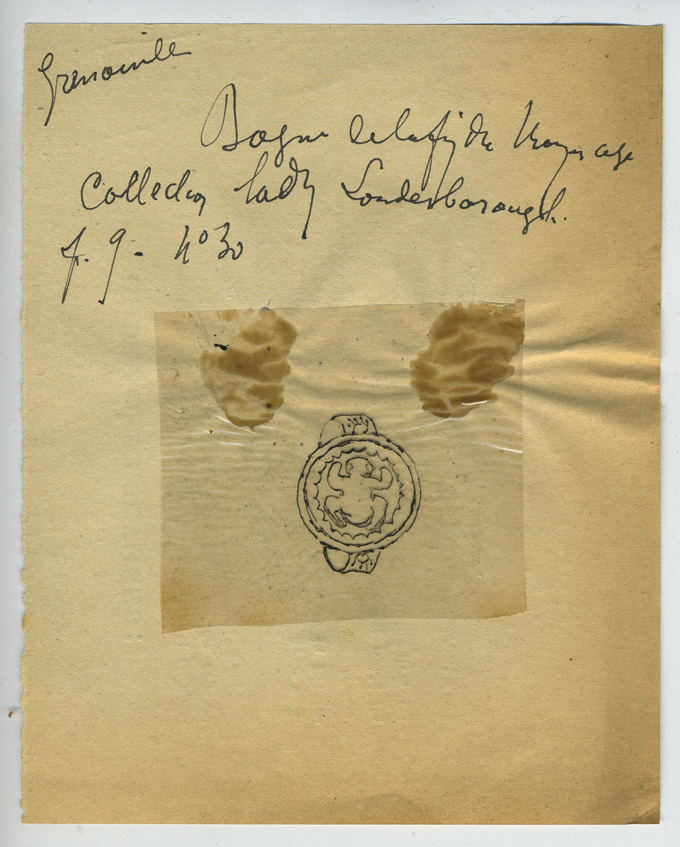 Grenouille
Bague de la fin du Moyen age
Collection lady Londesborough.
f. 9 - nº 30